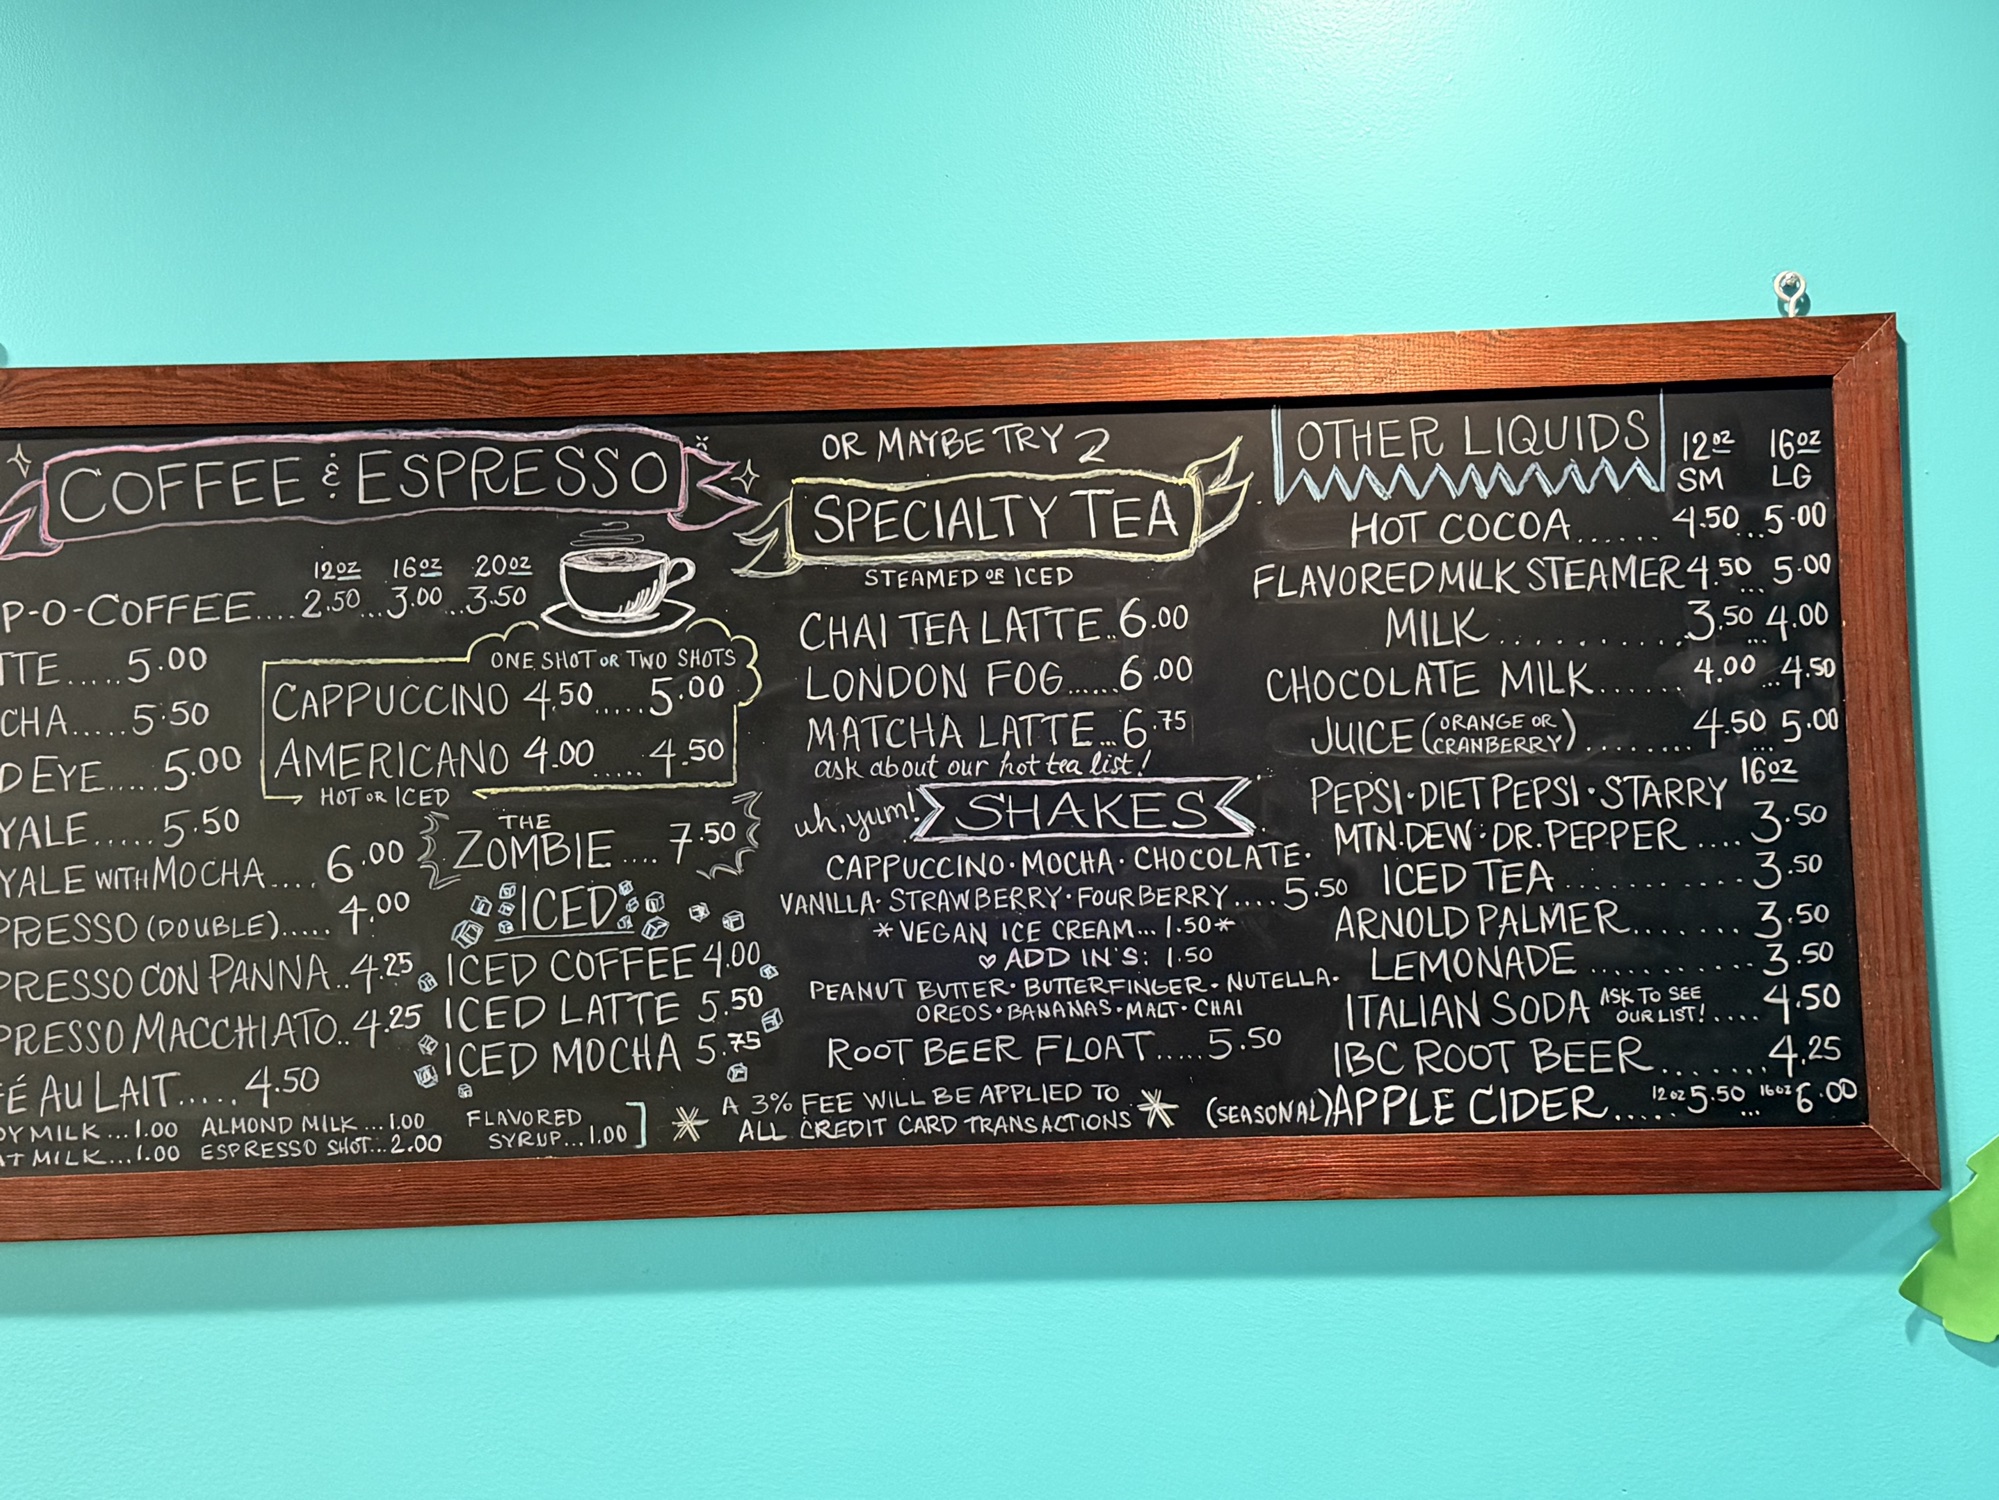 COFFEE & ESPRESSO
12oz 16oz 20oz
P-O-COFFEE....2.50...3.00...3.50
TTE.....5.00
CHA.....5.50
D EYE....5.00
YALE.....5.50
YALE WITH MOCHA....6.00
PRESSO (DOUBLE).....4.00
PRESSO CON PANNA..4.25
PRESSO MACCHIATO..4.25
FÉ AU LAIT.....4.50
OY MILK...1.00 ALMOND MILK...1.00
AT MILK...1.00 ESPRESSO SHOT...2.00
FLAVORED
SYRUP...1.00
ONE SHOT OR TWO SHOTS
CAPPUCCINO 4.50.....5.00
AMERICANO 4.00.....4.50
HOT OR ICED
THE
ZOMBIE....7.50
ICED
ICED COFFEE 4.00
ICED LATTE 5.50
ICED MOCHA 5.75
OR MAYBE TRY 2
SPECIALTY TEA
STEAMED OR ICED
CHAI TEA LATTE..6.00
LONDON FOG......6.00
MATCHA LATTE...6.75
ask about our hot tea list!
uh, yum! SHAKES
CAPPUCCINO · MOCHA · CHOCOLATE ·
VANILLA · STRAWBERRY · FOURBERRY....5.50
*VEGAN ICE CREAM...1.50*
♡ ADD IN'S: 1.50
PEANUT BUTTER · BUTTERFINGER · NUTELLA ·
OREOS · BANANAS · MALT · CHAI
ROOT BEER FLOAT.....5.50
* A 3% FEE WILL BE APPLIED TO *
ALL CREDIT CARD TRANSACTIONS
OTHER LIQUIDS 12oz 16oz
SM LG
HOT COCOA......4.50...5.00
FLAVORED MILK STEAMER 4.50...5.00
MILK............3.50...4.00
CHOCOLATE MILK......4.00...4.50
JUICE (ORANGE OR CRANBERRY)........4.50...5.00
16oz
PEPSI · DIET PEPSI · STARRY
MTN. DEW · DR. PEPPER....3.50
ICED TEA...........3.50
ARNOLD PALMER.......3.50
LEMONADE..........3.50
ITALIAN SODA ASK TO SEE OUR LIST!....4.50
IBC ROOT BEER.......4.25
(SEASONAL) APPLE CIDER....12oz 5.50...16oz 6.00